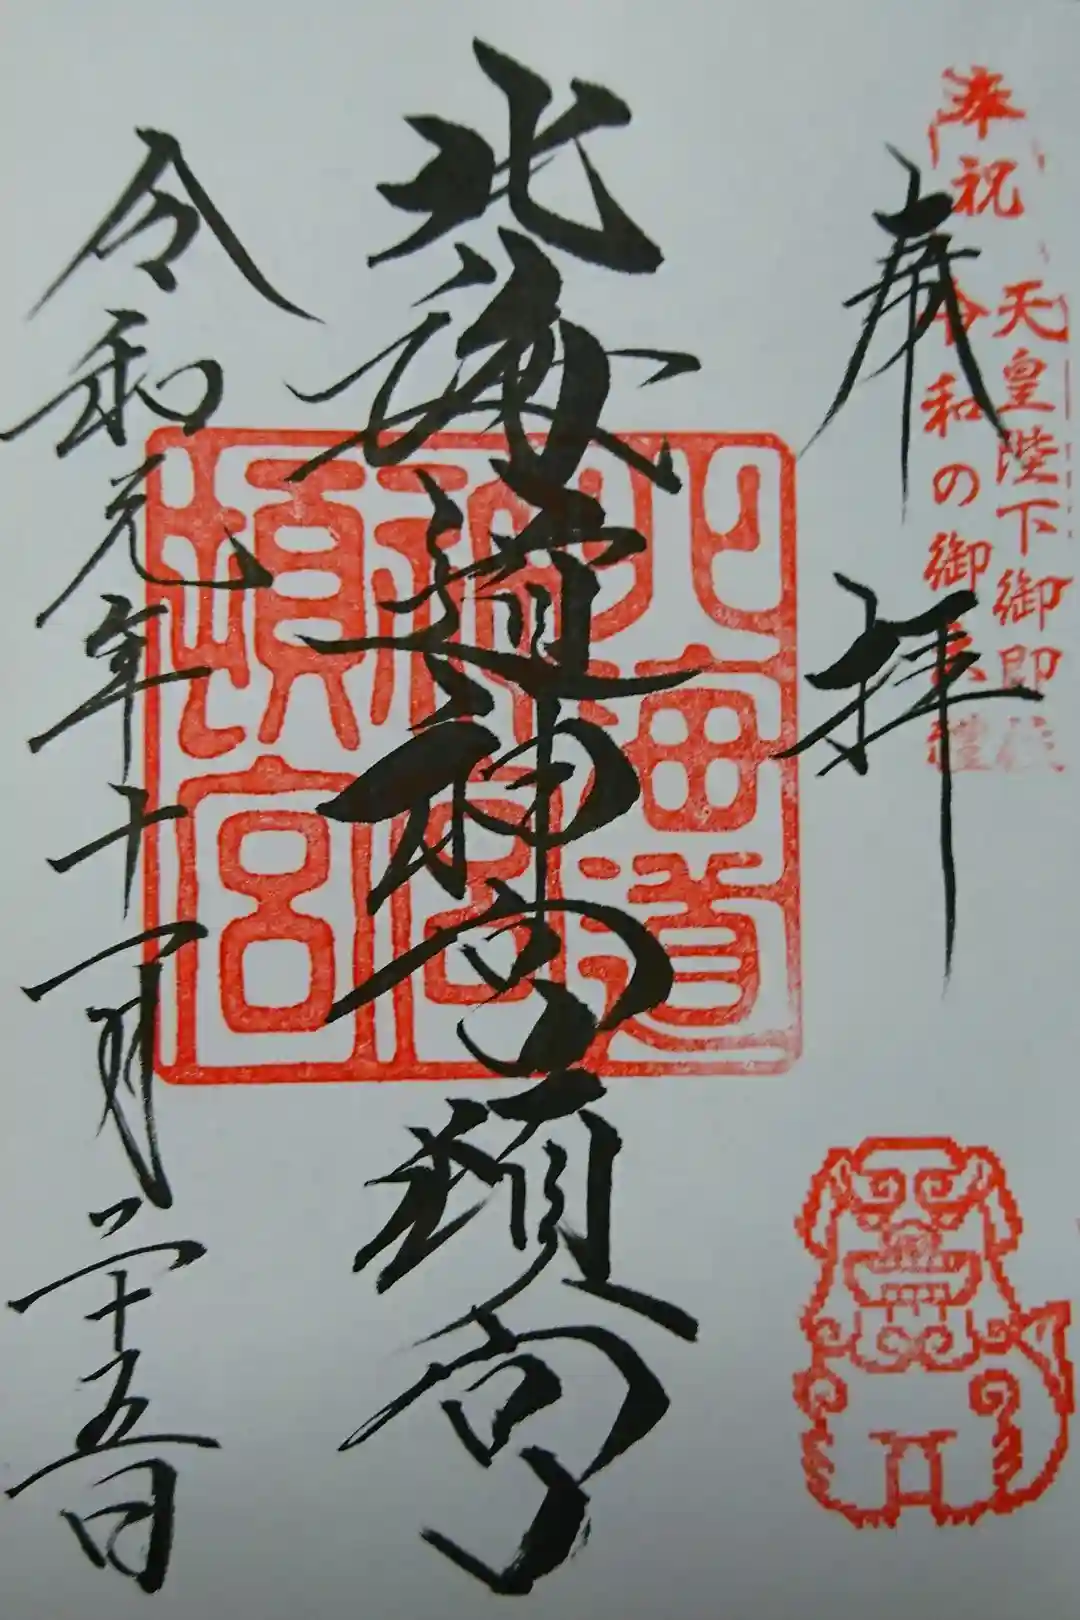 奉祝 天皇陛下御即位
令和の御大禮
奉拝
北海道神宮頓宮
北海道
神宮
頓宮
令和元年十一月二十五日